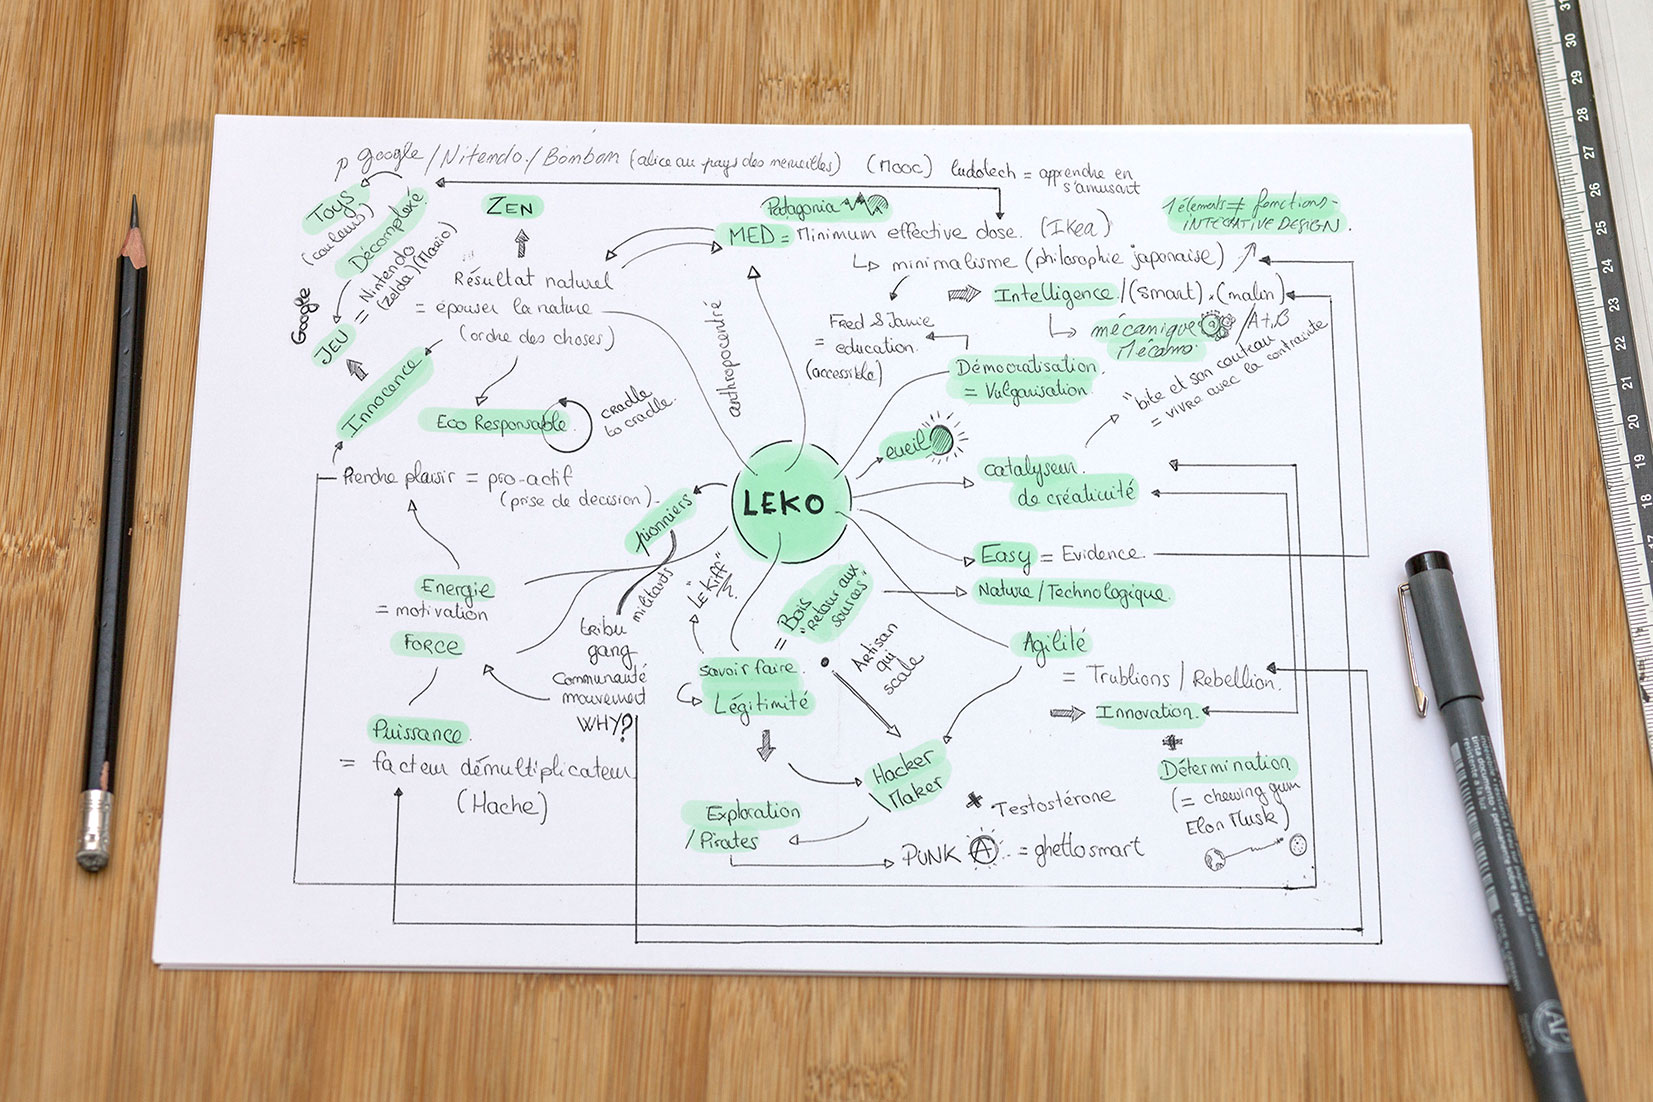 google / Nitendo / Bombom (alice au pays des merveilles) (Mooc) ludotech = apprendre en
s'amusant
Toys
(couleurs)
Décomplexé
= Nintendo
(Zelda)(Mario)
Google
JEU
Innocence
ZEN
Résultat naturel
= épouser la nature
(ordre des choses)
Eco Responsable
cradle
to cradle.
Patagonia
MED = Minimum effective dose. (Ikea)
minimalisme (philosophie japonaise)
1 élements ≠ fonctions -
INTEGRATIVE DESIGN.
Intelligence / (smart) . (malin)
mécanique
Mécano
A+B
Fred & Jamie
= education.
(accessible)
Démocratisation.
= Vulgarisation.
anthropocentré
"bite et son couteau"
= vivre avec la contrainte
eveil
catalyseur.
de créativité
Prendre plaisir = pro-actif
(prise de decision).
pionniers
LEKO
Easy = Evidence.
Nature / Technologique.
Energie
= motivation
FORCE
militants
tribu
gang
Communauté
mouvement
WHY?
"LE Kiff"
= Bois
"retour aux
sources"
savoir faire.
Légitimité
Artisan
qui
scale
Agilité
= Trublions / Rebellion.
Innovation.
+
Détermination
(= chewing gum
Elon Musk)
Puissance.
= facteur démultiplicateur
(Hache)
Hacker
\Maker
Exploration
/ Pirates
Testostérone
PUNK A = ghetto smart
31
30
29
28
27
26
25
24
23
22
21
20
19
18
17